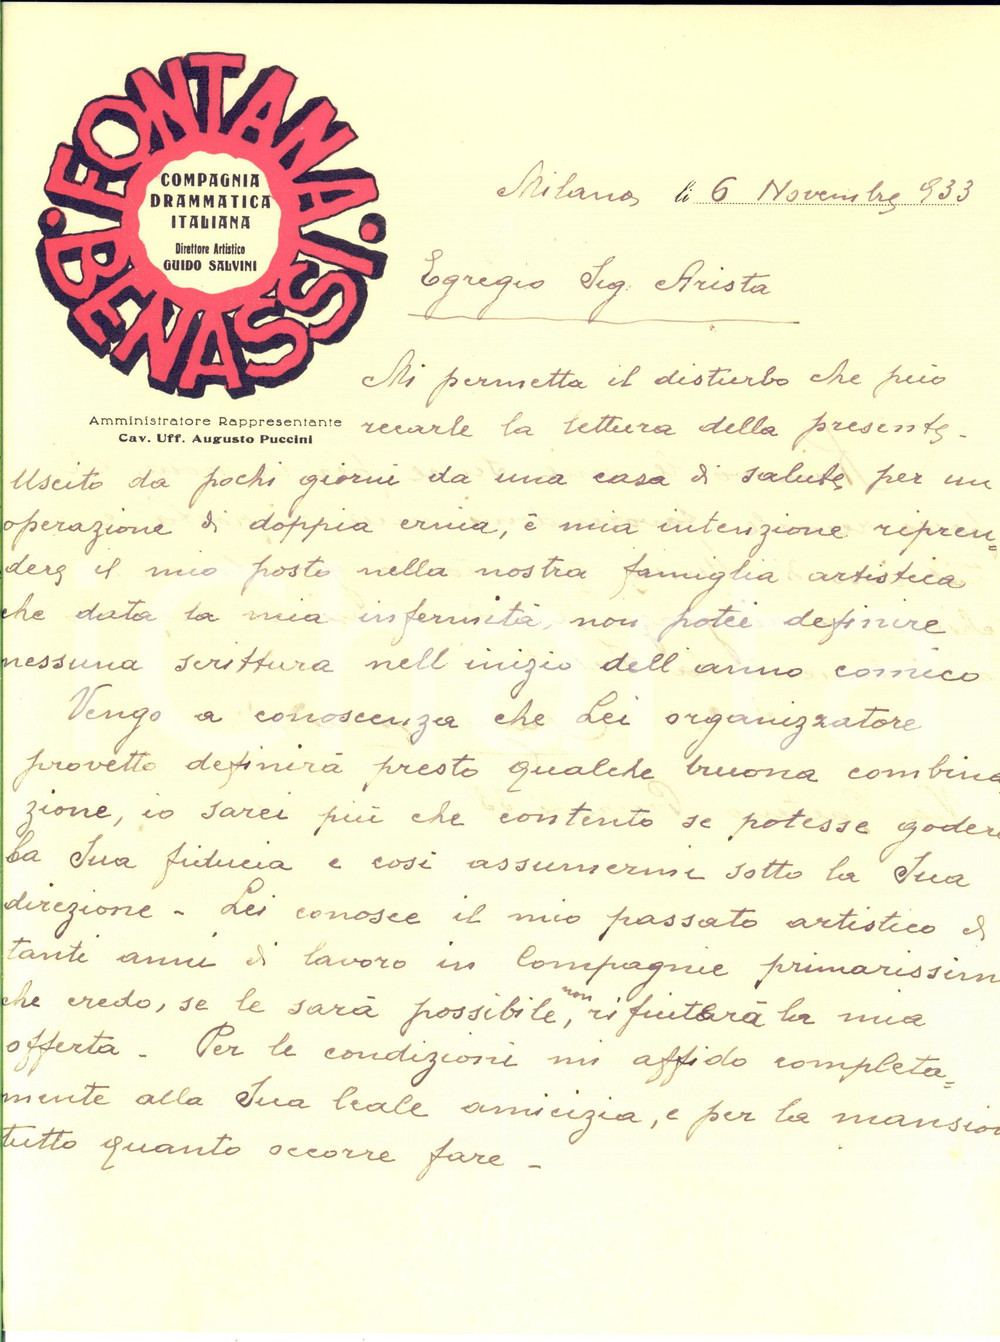 FONTANA
BENASSI
COMPAGNIA
DRAMMATICA
ITALIANA
Direttore Artistico
GUIDO SALVINI
Amministratore Rappresentante
Cav. Uff. Augusto Puccini
Milano, li 6 Novembre 933
Egregio Sig. Arista
Mi permetta il disturbo che può
recarle la lettura della presente -
Uscito da pochi giorni da una casa di salute per un
operazione di doppia ernia, è mia intenzione ripren=
dere il mio posto nella nostra famiglia artistica
che data la mia infermità, non potei definire
nessuna scrittura nell'inizio dell'anno comico
Vengo a conoscenza che Lei organizzatore
provetto definirà presto qualche buona combina
zione, io sarei più che contento se potesse godere
la Sua fiducia e così assumermi sotto la Sua
direzione - Lei conosce il mio passato artistico di
tanti anni di lavoro in Compagnie primarissim
che credo, se le sarà possibile, non rifiuterà la mia
offerta - Per le condizioni mi affido completa=
mente alla Sua leale amicizia, e per la mansion
tutto quanto occorre fare -